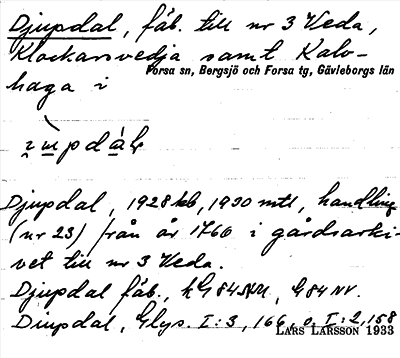 Djupdal, fäb. till nr 3 Veda,
Klockarsvedja samt Kalv-
Forsa sn, Bergsjö och Forsa tg, Gävleborgs län
haga i
Djupdal, 1928 kb, 1930 mtl, handling
(nr 23) från år 1766 i gårdsarki-
vet till nr 3 Veda.
Djupdal fäb., kG 84 NV, G 84 NV.
Djupdal, Glys. I:3, 166, o. I:2, 158
LARS LARSSON 1933